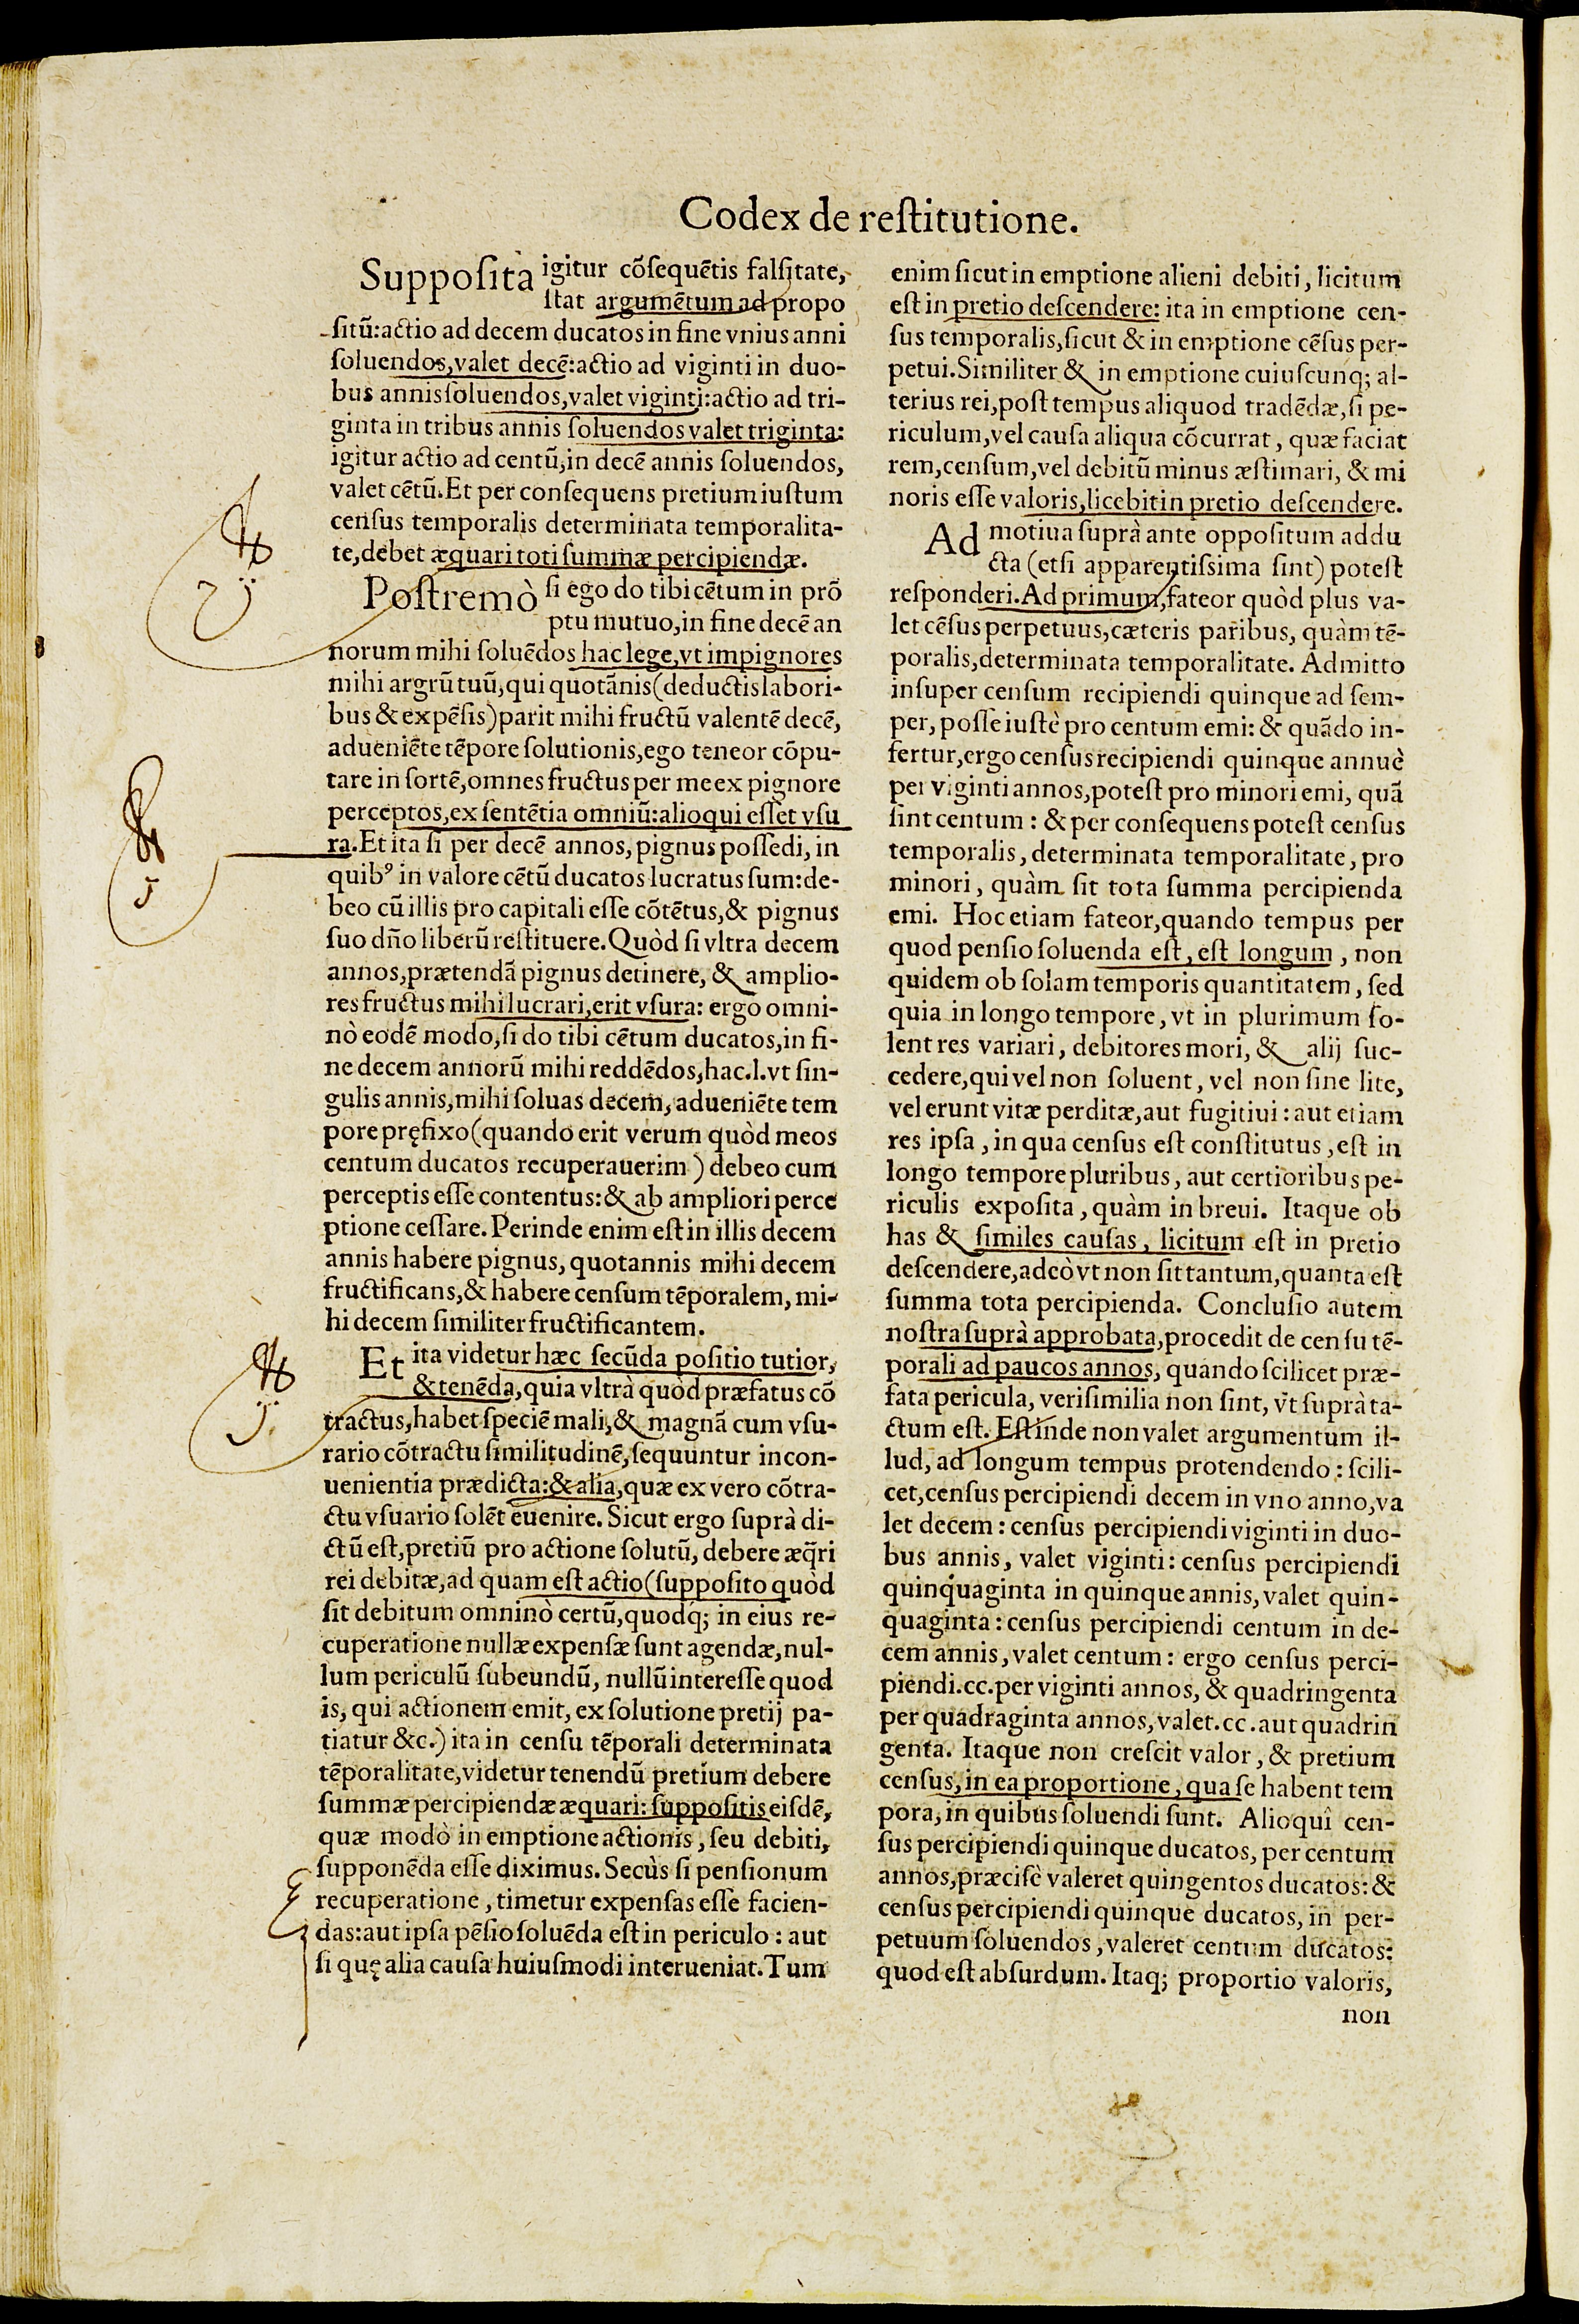 Codex de reſtitutione.
Suppoſita igitur cõſequẽtis falſitate,
ſtat argumẽtum ad propo
ſitũ: actio ad decem ducatos in fine vnius anni
ſoluendos, valet decẽ: actio ad viginti in duo-
bus annis ſoluendos, valet viginti: actio ad tri-
ginta in tribus annis ſoluendos valet triginta:
igitur actio ad centũ, in decẽ annis ſoluendos,
valet cẽtũ. Et per conſequens pretium iuſtum
cenſus temporalis determinata temporalita-
te, debet æquari toti ſummæ percipiendæ.
Poſtremò ſi ego do tibi cẽtum in prõ
ptu mutuo, in fine decẽ an
norum mihi ſoluẽdos hac lege, vt impignores
mihi argrũ tuũ, qui quotãnis (deductis labori-
bus & expẽſis) parit mihi fructũ valentẽ decẽ,
adueniẽte tẽpore ſolutionis, ego teneor cõpu-
tare in ſortẽ, omnes fructus per me ex pignore
perceptos, ex ſentẽtia omniũ: alioqui eſſet vſu
ra. Et ita ſi per decẽ annos, pignus poſſedi, in
quibꝰ in valore cẽtũ ducatos lucratus ſum: de-
beo cũ illis pro capitali eſſe cõtẽtus, & pignus
ſuo dño liberũ reſtituere. Quòd ſi vltra decem
annos, prætendã pignus detinere, & amplio-
res fructus mihi lucrari, erit vſura: ergo omni-
nò eodẽ modo, ſi do tibi cẽtum ducatos, in fi-
ne decem annorũ mihi reddẽdos, hac.l.vt ſin-
gulis annis, mihi ſoluas decem, adueniẽte tem
pore pręfixo (quando erit verum quòd meos
centum ducatos recuperauerim) debeo cum
perceptis eſſe contentus: & ab ampliori perce
ptione ceſſare. Perinde enim eſt in illis decem
annis habere pignus, quotannis mihi decem
fructificans, & habere cenſum tẽporalem, mi-
hi decem ſimiliter fructificantem.
Et ita videtur hæc ſecũda poſitio tutior,
& tenẽda, quia vltrà quòd præfatus cõ
tractus, habet ſpeciẽ mali, & magnã cum vſu-
rario cõtractu ſimilitudinẽ, ſequuntur incon-
uenientia prædicta: & alia, quæ ex vero cõtra-
ctu vſuario ſolẽt euenire. Sicut ergo ſuprà di-
ctũ eſt, pretiũ pro actione ſolutũ, debere æq̃ri
rei debitæ, ad quam eſt actio (ſuppoſito quòd
ſit debitum omninò certũ, quodq; in eius re-
cuperatione nullæ expenſæ ſunt agendæ, nul-
lum periculũ ſubeundũ, nullũ intereſſe quod
is, qui actionem emit, ex ſolutione pretij pa-
tiatur &c.) ita in cenſu tẽporali determinata
tẽporalitate, videtur tenendũ pretium debere
ſummæ percipiendæ æquari: ſuppoſitis eiſdẽ,
quæ modò in emptione actionis, ſeu debiti,
ſupponẽda eſſe diximus. Secùs ſi penſionum
recuperatione, timetur expenſas eſſe facien-
das: aut ipſa pẽſio ſoluẽda eſt in periculo: aut
ſi quę alia cauſa huiuſmodi interueniat. Tum
enim ſicut in emptione alieni debiti, licitum
eſt in pretio deſcendere: ita in emptione cen-
ſus temporalis, ſicut & in emptione cẽſus per-
petui. Similiter & in emptione cuiuſcunq; al-
terius rei, poſt tempus aliquod tradẽdæ, ſi pe-
riculum, vel cauſa aliqua cõcurrat, quæ faciat
rem, cenſum, vel debitũ minus æſtimari, & mi
noris eſſe valoris, licebit in pretio deſcendere.
Ad motiua ſuprà ante oppoſitum addu
cta (etſi apparentiſsima ſint) poteſt
reſponderi. Ad primum, fateor quòd plus va-
let cẽſus perpetuus, cæteris paribus, quàm tẽ-
poralis, determinata temporalitate. Admitto
inſuper cenſum recipiendi quinque ad ſem-
per, poſſe iuſtè pro centum emi: & quãdo in-
fertur, ergo cenſus recipiendi quinque annuè
per viginti annos, poteſt pro minori emi, quã
ſint centum: & per conſequens poteſt cenſus
temporalis, determinata temporalitate, pro
minori, quàm ſit tota ſumma percipienda
emi. Hoc etiam fateor, quando tempus per
quod penſio ſoluenda eſt, eſt longum, non
quidem ob ſolam temporis quantitatem, ſed
quia in longo tempore, vt in plurimum ſo-
lent res variari, debitores mori, & alij ſuc-
cedere, qui vel non ſoluent, vel non ſine lite,
vel erunt vitæ perditæ, aut fugitiui: aut etiam
res ipſa, in qua cenſus eſt conſtitutus, eſt in
longo tempore pluribus, aut certioribus pe-
riculis expoſita, quàm in breui. Itaque ob
has & ſimiles cauſas, licitum eſt in pretio
deſcendere, adeò vt non ſit tantum, quanta eſt
ſumma tota percipienda. Concluſio autem
noſtra ſuprà approbata, procedit de cenſu tẽ-
porali ad paucos annos, quando ſcilicet præ-
fata pericula, veriſimilia non ſint, vt ſuprà ta-
ctum eſt. Eſt inde non valet argumentum il-
lud, ad longum tempus protendendo: ſcili-
cet, cenſus percipiendi decem in vno anno, va
let decem: cenſus percipiendi viginti in duo-
bus annis, valet viginti: cenſus percipiendi
quinquaginta in quinque annis, valet quin-
quaginta: cenſus percipiendi centum in de-
cem annis, valet centum: ergo cenſus perci-
piendi.cc.per viginti annos, & quadringenta
per quadraginta annos, valet.cc.aut quadrin
genta. Itaque non creſcit valor, & pretium
cenſus, in ea proportione, qua ſe habent tem
pora, in quibus ſoluendi ſunt. Alioquî cen-
ſus percipiendi quinque ducatos, per centum
annos, præciſè valeret quingentos ducatos: &
cenſus percipiendi quinque ducatos, in per-
petuum ſoluendos, valeret centum ducatos:
quod eſt abſurdum. Itaq; proportio valoris,
non